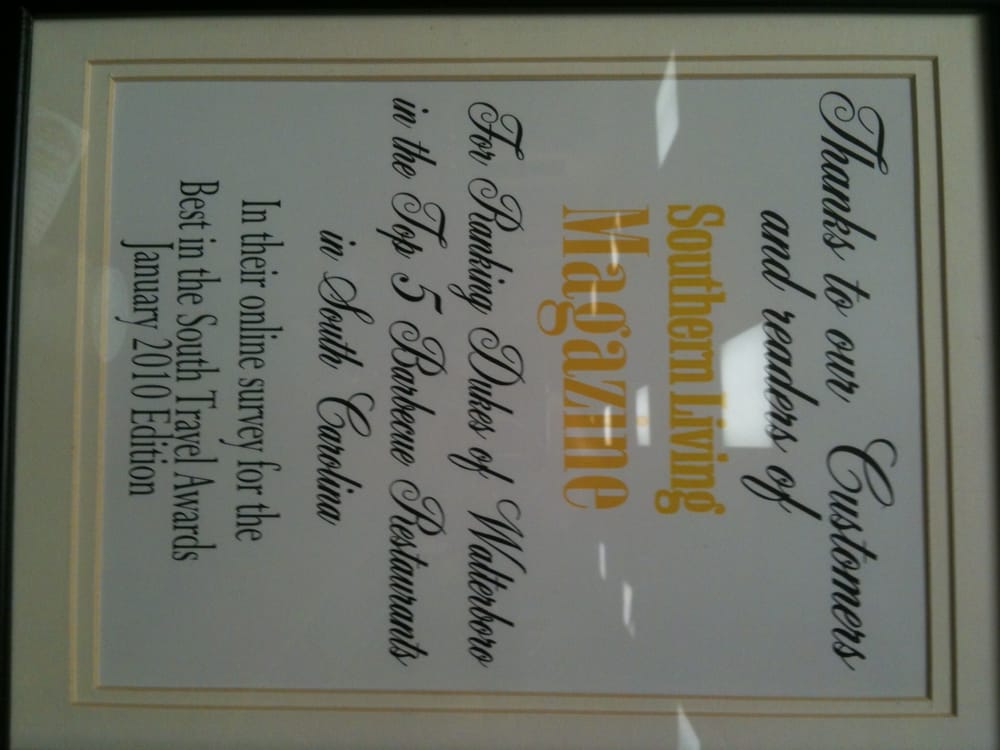 Thanks to our Customers
and readers of
Southern Living
Magazine
For Ranking Dukes of Walterboro
in the Top 5 Barbecue Restaurants
in South Carolina
In their online survey for the
Best in the South Travel Awards
January 2010 Edition